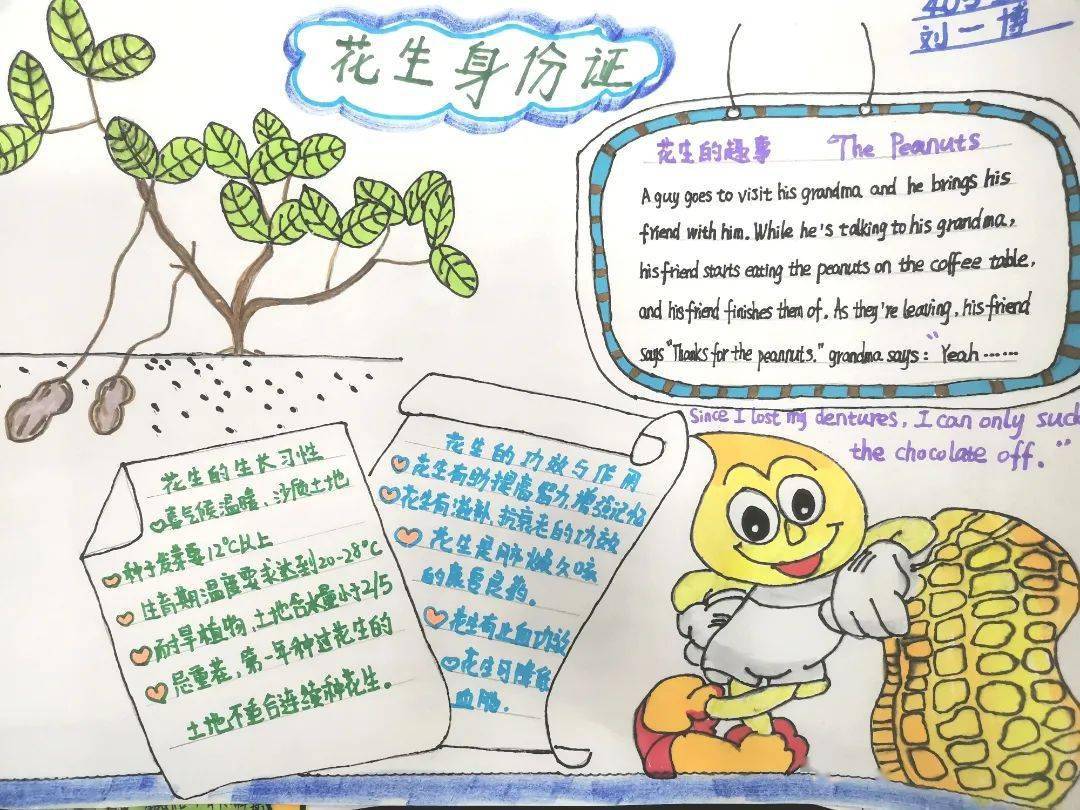 花生身份证
刘一博
花生的趣事 "The Peanuts
A guy goes to visit his grandma and he brings his
friend with him. While he's talking to his grandma,
his friend starts eating the peanuts on the coffee table,
and his friend finishes them of. As they're leaving, his friend
says "Thanks for the peannuts." grandma says: "Yeah ……
Since I lost my dentures, I can only suck
the chocolate off."
花生的生长习性
喜气候温暖、沙质土地
种子发芽要12°C以上
生育期温度要求达到20-28°C
耐旱植物,土地含水量小于2/5
忌重茬,第一年种过花生的
土地不适合连续种花生。
花生的功效与作用
花生有助提高智力,增强记忆
花生有滋补、抗衰老的功效
花生是肺燥久咳
的食疗良药。
花生有止血功效
花生可降低
血脂.